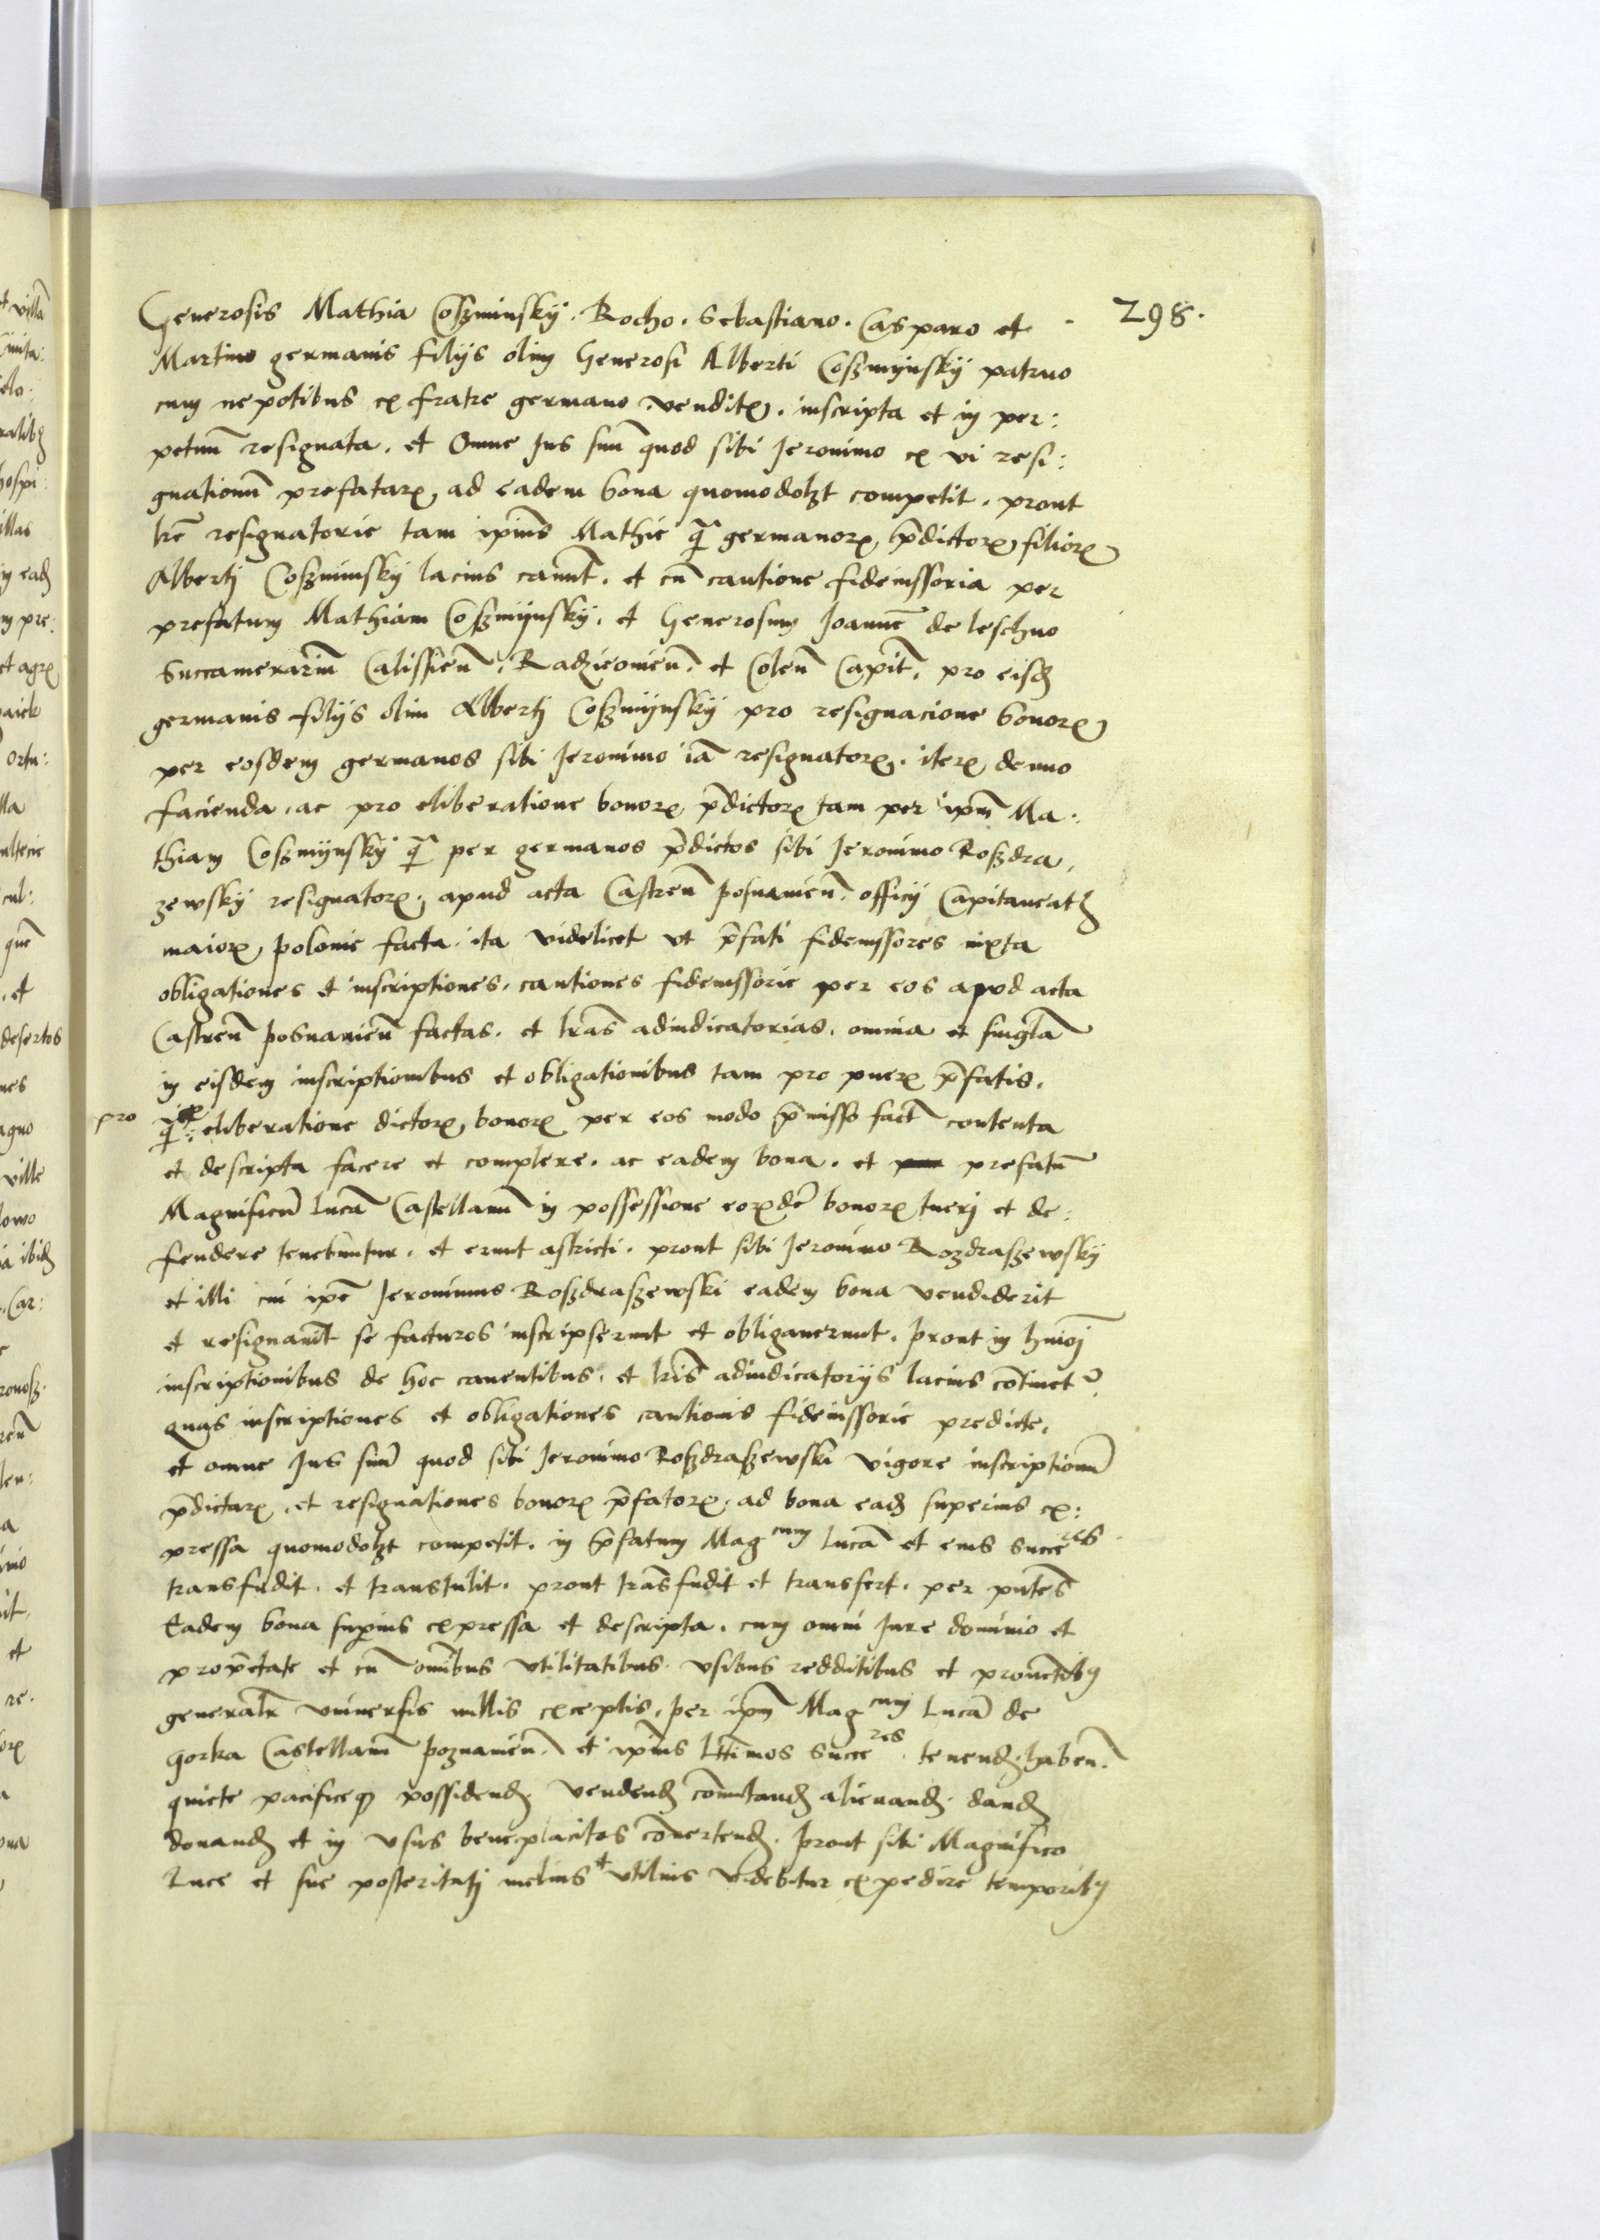 298.
Generosis Mathia Coszminsky. Rocho. Sebastiano. Casparo et
Martino germanis filijs olim Generosi Alberti Coszmijnskij patruo
cum nepotibus ex fratre germano venditꝫ. inscripta et in per:
petuū resignata. et Omne Jus suū quod sibi Jeronimo ex vi resi:
gnationū prefatarꝫ ad eadem bona quomodolꝫt competit. prout
lrē resignatorie tam ip̄ius Mathie q̄ germanorꝫ p̄dictorꝫ filiorꝫ
Albertj Coszminskij lacius canūt. et cū cautione fideiussoria per
prefatum Mathiam Coszmijnskij. et Generosum Joannē de leschno
Succamerariū Calissieñ. Radzieoieñ. et Coleñ Capit̄. pro eisdꝫ
germanis filijs olim Albertj Coszmijnskij pro resignacione bonorꝫ
per eosdem germanos sibi Jeronimo iā resignatorꝫ. iterꝫ denuo
facienda. ac pro eliberatione bonorꝫ p̄dictorꝫ tam per ip̄m Ma:
thiam Coszmijnsky q̄ per germanos p̄dictos sibi Jeronimo Roszdra,
zewsky resignatorꝫ. apud acta Castreñ posnanieñ. officij Capitaneatꝫ
maiorꝫ polonie facta. ita videlicet vt p̄fati fideiussores iuxta
obligationes et inscriptiones. cautiones fideiussorie per eos apud acta
Castreñ posnanieñ factas. et lrās adiudicatorias. omnia et singlā
in eisdem inscriptionibus et obligationibus tam pro puerꝫ p̄fatis.
pro q̄ eliberatione dictorꝫ bonorꝫ per eos modo p̄misso fact̄ contenta
et descripta facere et complere. ac eadem bona. et prefatū
Magnificū Lucā Castellanū in possessione eorꝫdē bonorꝫ tuerj et de:
fendere tenebuntur. et erunt astricti. prout sibi Jeronimo Rozdraszewsky
et illi cui ip̄e Jeronimus Roszdraszewski eadem bona vendiderit
et resignauit̄ se facturos inscripserunt et obligauerunt. prout in hmōi
inscriptionibus de hoc canentibus. et lrīs adiudicatorijs lacius cōtinet̄
quas inscriptiones et obligationes cautionis fideiussorie predicte.
et omne Jus suū quod sibi Jeronimo Roszdraszewski vigore inscriptionū
p̄dictarꝫ. et resignationes bonorꝫ p̄fatorꝫ. ad bona eadꝫ superius ex:
pressa quomodolꝫt competit. in p̄fatum Mag cum Lucā et eius succe res
transfudit. et transtulit. prout trāsfudit et transfert. per pn̄tes
Eadem bona sup̄ius expressa et descripta. cum omni Jure dominio et
prop̄etate et cū om̄ibus vtilitatibus. vsibus redditibus et prouentibꝫ
generalr̄ vniuersis nullis exceptis. per ip̄m Mag cum Lucā de
Gorka Castellanū poznanieñ. et ip̄ius lttīmos succe res. tenendꝫ. habeñ.
quiete pacificeqꝫ possidendꝫ. vendendꝫ cōmutandꝫ alienandꝫ. dandꝫ
donandꝫ et in vsus beneplacitos cōuertendꝫ. prout sibi Magnifico
Luce et sue posteritatj melius et vtilius videbitur expedire temporibꝫ